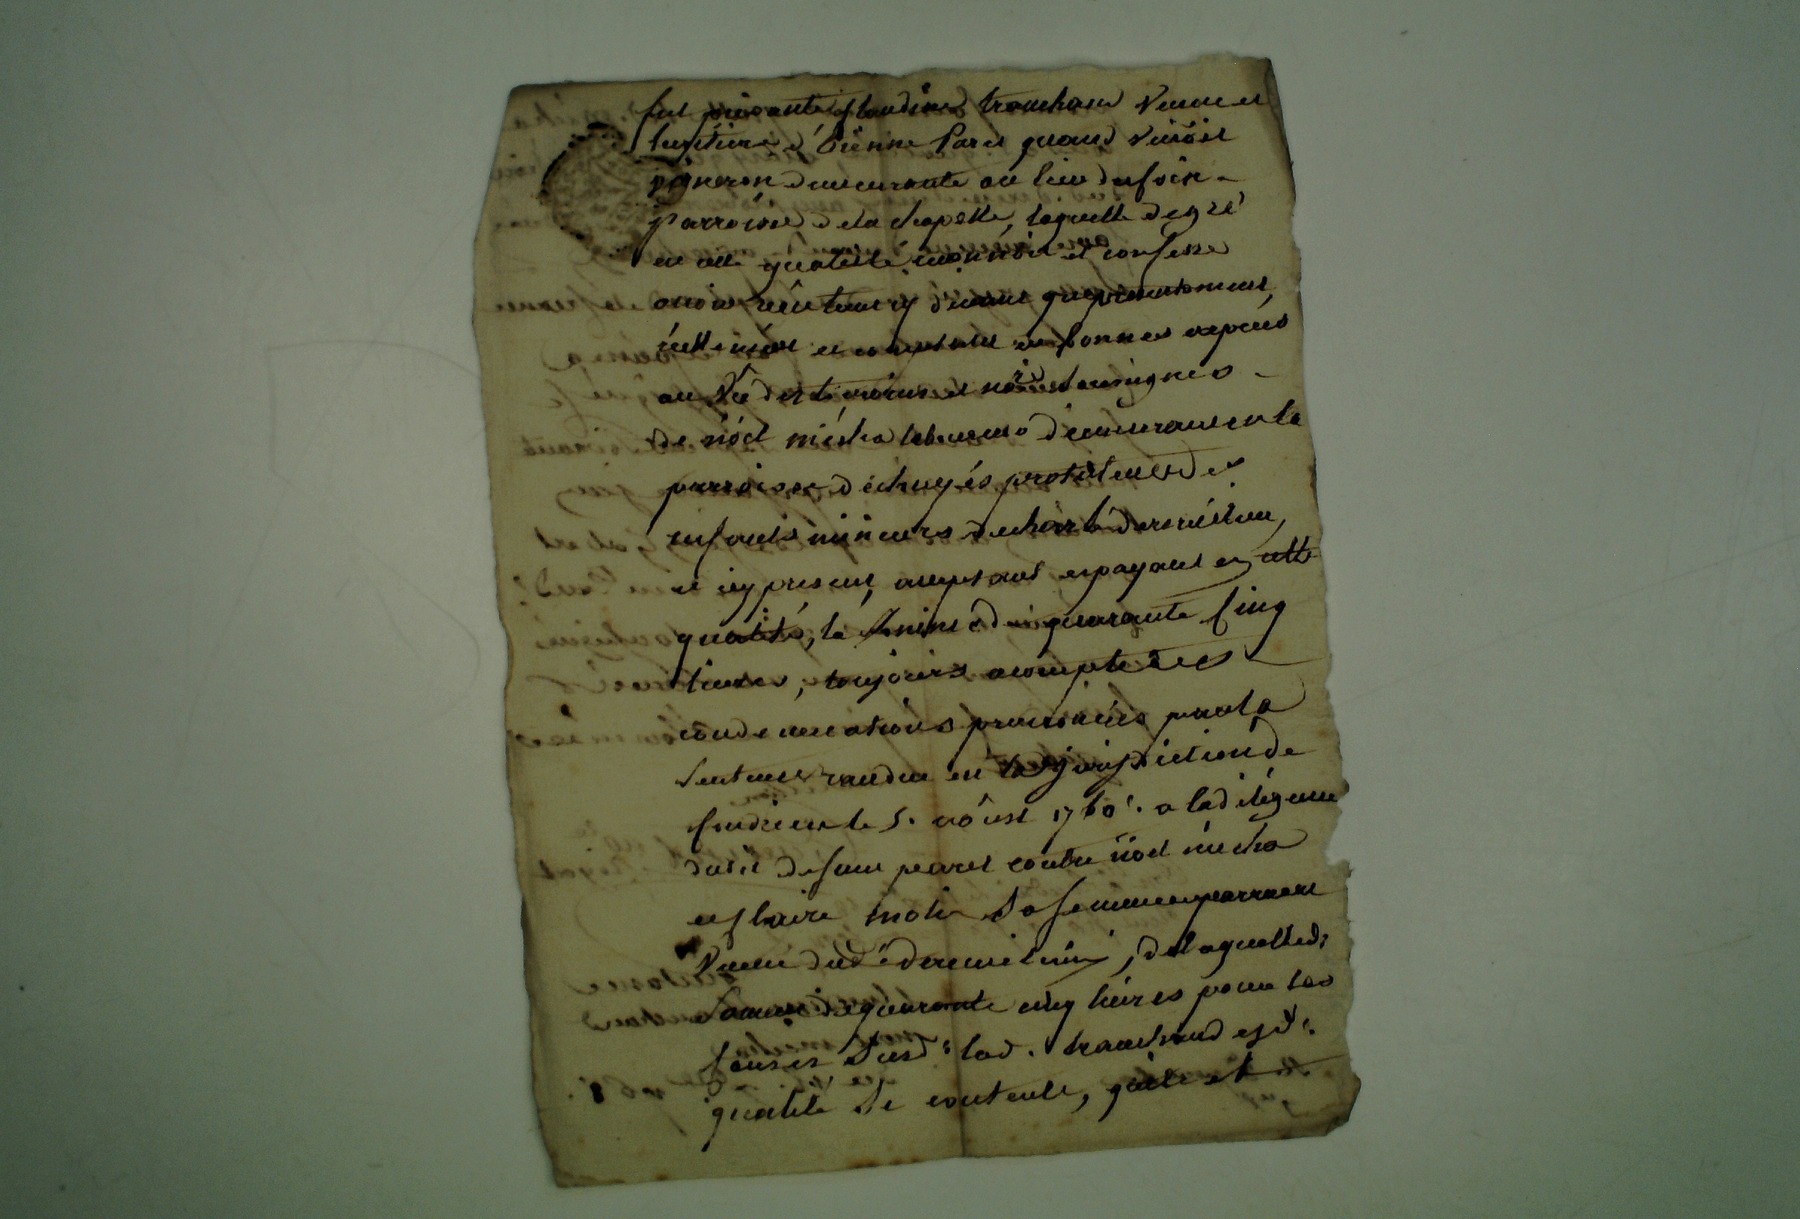 fut présente Claudine tranchand Veuve et
heritiere d'Etienne Paret quand vivoit
vigneron demeurante au lieu du foin
parroisse de la chapelle, laquelle de gré
en cette qualité reconnoit et confesse
avoir reçu tant cy devant que presentement,
reellement et comptant en bonnes especes
au Vû des temoins et no.re soussignes
de noël mécha demeurant en la
parroisse d'échuyés protuteur des
enfants mineurs de
et icy present, acceptant et payant en cette
qualité, la somme de quarante cinq
livres, toujours acompte des
condemnations prononcées par la
Sentence randue en la jurisdiction de
le 5. août 1760. a lad
dud. defunt paret contre noël mécha
et Claire Sa femme auparavant
Veuve dud. , de laquelle d:
Somme de quarante cinq livres pour les
causes Susd: lad. tranchand esd:
qualité Se contente, quite et